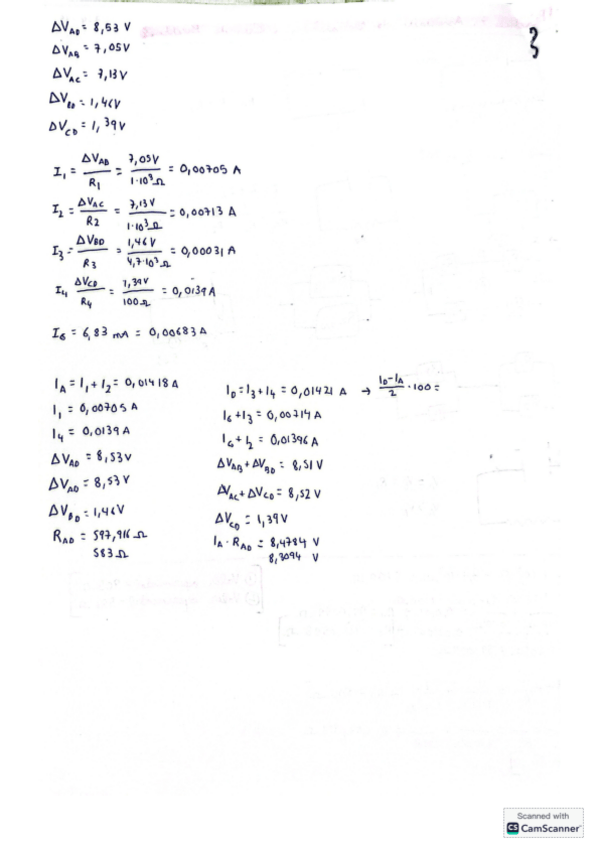 3
ΔV_AD = 8,53 V
ΔV_AB = 7,05V
ΔV_AC = 7,13V
ΔV_BD = 1,46V
ΔV_CD = 1,39V
I₁ = ΔV_AB/R₁ = 7,05V/1·10³Ω = 0,00705 A
I₂ = ΔV_AC/R2 = 7,13V/1·10³Ω = 0,00713 A
I₃ = ΔV_BD/R₃ = 1,46V/4,7·10³Ω = 0,00031 A
I₄ ΔV_CD/R₄ = 1,39V/100Ω = 0,0139A
I₆ = 6,83 mA = 0,00683A
I_A = I₁ + I₂ = 0,01418A
I₁ = 0,00705 A
I₄ = 0,0139 A
ΔV_AD = 8,53V
ΔV_AD = 8,53V
ΔV_BD = 1,46V
R_AD = 597,916 Ω
583 Ω
I_D = I₃ + I₄ = 0,01421 A → I_D-I_A/2 · 100 =
I₆ + I₃ = 0,00714 A
I₆ + I₂ = 0,01396 A
ΔV_AB + ΔV_BD = 8,51V
ΔV_AC + ΔV_CD = 8,52V
ΔV_CD = 1,39V
I_A · R_AD = 8,4784 V
8,3094 V
Scanned with
CS CamScanner